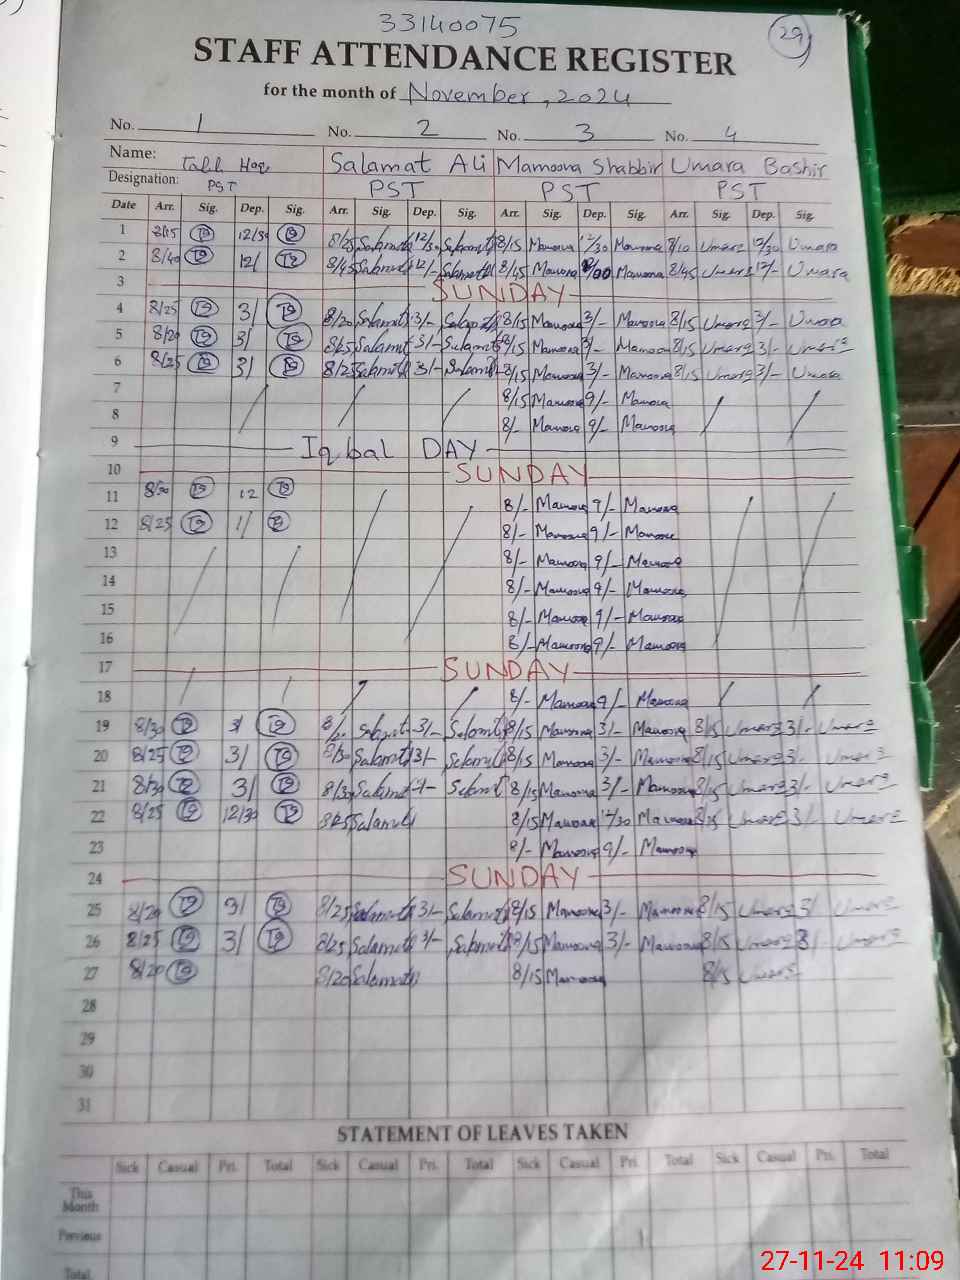 33140075
29
STAFF ATTENDANCE REGISTER
for the month of November, 2024
No. 1 No. 2 No. 3 No. 4
Name: Haq Salamat Ali Mamoona Shabbir Umara Bashir
Designation: PST PST PST PST
Date Arr. Sig. Dep. Sig. Arr. Sig. Dep. Sig. Arr. Sig. Dep. Sig. Arr. Sig. Dep. Sig.
1 8/15 12/30 8/25 Salamat 12/30 Salamat 8/15 Mamoona 12/30 Mamoona 8/10 Umara 12/30 Umara
2 8/40 12/ 8/45 Salamat 12/- Salamat 8/45 Mamoona Mamoona 8/45 Umara 12/- Umara
3 SUNDAY
4 8/25 3/ 8/20 Salamat 3/- Salamat 8/15 Mamoona 3/- Mamoona 8/15 Umara 3/- Umara
5 8/20 3/ Salamat 3/- Salamat 8/15 Mamoona 3/- Mamoona 8/15 Umara 3/- Umara
6 8/25 3/ 8/25 Salamat 3/- Salamat 8/15 Mamoona 3/- Mamoona 8/15 Umara 3/- Umara
7 8/15 Mamoona 9/- Mamoona
8 8/- Mamoona 9/- Mamoona
9 Iqbal DAY
10 SUNDAY
11 8/30 12 8/- Mamoona 9/- Mamoona
12 8/25 1/ 8/- Mamoona 9/- Mamoona
13 8/- Mamoona 9/- Mamoona
14 8/- Mamoona 9/- Mamoona
15 8/- Mamoona 9/- Mamoona
16 8/- Mamoona 9/- Mamoona
17 SUNDAY
18 8/- Mamoona 9/- Mamoona
19 8/30 3/ Salamat 3/- Salamat 8/15 Mamoona 3/- Mamoona 8/15 Umara 3/- Umara
20 8/25 3/ 8/30 Salamat 3/- Salamat 8/15 Mamoona 3/- Mamoona 8/15 Umara 3/- Umara
21 8/30 3/ 8/30 Salamat Salamat 8/15 Mamoona 3/- Mamoona 8/15 Umara 3/- Umara
22 8/25 12/30 8/25 Salamat 8/15 Mamoona 12/30 Mamoona 8/15 Umara 3/- Umara
23 8/- Mamoona 9/- Mamoona
24 SUNDAY
25 8/20 3/ 8/25 Salamat 3/- Salamat 8/15 Mamoona 3/- Mamoona 8/15 Umara 3/ Umara
26 8/25 3/ 8/25 Salamat 3/- Salamat 8/15 Mamoona 3/- Mamoona 8/15 Umara 3/- Umara
27 8/20 8/20 Salamat 8/15 Mamoona 8/15 Umara
28
29
30
31
STATEMENT OF LEAVES TAKEN
Sick Casual Pri. Total Sick Casual Pri. Total Sick Casual Pri. Total Sick Casual Pri. Total
This Month
Previous
Total
27-11-24 11:09